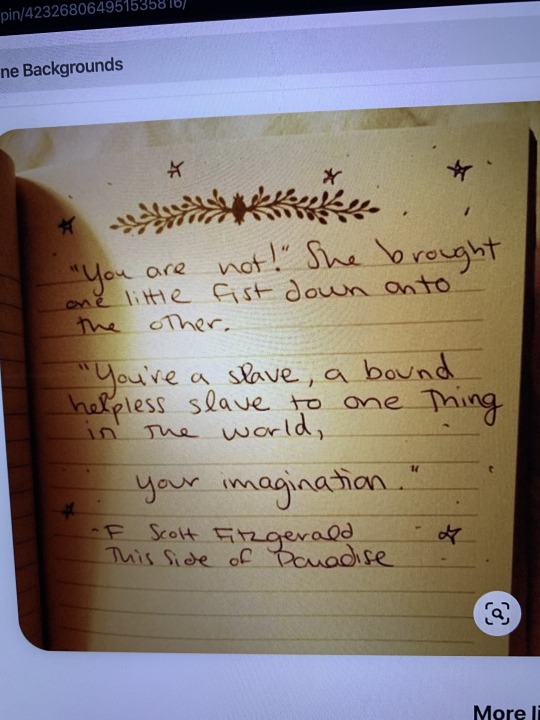 pin/423268064951535816/
ne Backgrounds
"You are not!" She brought
one little fist down onto
the other.
"You're a slave, a bound
helpless slave to one thing
in the world,
your imagination."
-F Scott Fitzgerald
This Side of Paradise
More li